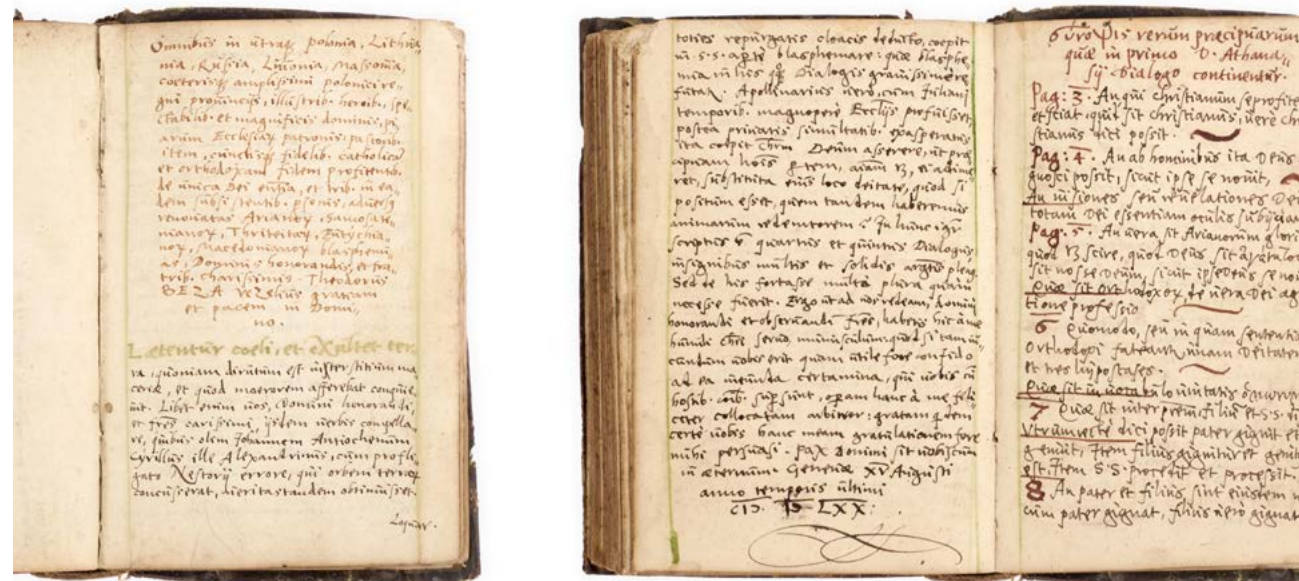 Omnibus in utraq; polonia, Lithua„
nia, Russia, Livonia, Massovia,
coeterisq; amplissimi polonici re„
gni provincijs, illustrib. heroib. spe„
ctabilib. et magnificis dominis, pi„
arum Ecclesiar patronis: pastorib.
item, cunctisq; fidelib. catholicā
et orthodoxam fidem profitentib.
de unica Dei eūtia, et trib. in ea„
dem subsistentib. psonis, adversq
renovatas Arianor, Samosate„
nianor, Thriteitar, Eutychia„
nor, Macedonianor blasphemi„
as, Dominis honorandis, et fra„
trib. Charissimis Theodorus
BEZA Vezelius gratiam
et pacem in Domi„
no.
Laetentur coeli, et exultet ter„
ra, quoniam dirutum est interstitium ma
ceriae, et quod moerorem afferebat conquie„
vit. Libet enim vos, Domini honorandi,
et frēs carissimi, ijsdem verbis compella„
re, quibus olim Johannem Antiochenum
Cyrillus ille Alexandrinus, cum profli„
gato Nestorij errore, qui orbem terrar
concusserat, veritas tandem obtinuisset.
Loquar.
toties repurgatis cloacis deducto, coepit
in S.S. apte blasphemare: quae blasphe„
mia in his Dialogis gravissime re„
futat. Apollinarius vero, cum Juliani
temporib. magnopere Ecclijs profuisset,
postea privatis simultatib. exasperatus
ita coepit Chrm Deum asserere, ut prae
cipuam hois ptem, aiam
ret, substituta eius loco deitate, quod si
positum esset, quem tandem haberemus
animarum redemtorem? In hunc
scriptus quartus et quintus Dialogus,
insignibus multis et solidis argtis plenq
Sed de his fortasse multo plura quam
necesse fuerit. Ergo ut ad vos redeam, Domini
honorandi et observandi frēs, habetis hic a me
humili Chri servo, munusculum: quod si tam iu„
cundum vobis erit quam utile fore confido
ad ea ineunda certamina, qui vobis cū
hostib. supersunt, opam hanc a me feli
citer collocatam arbitror: gratam qdem
certe vobis hanc meam gratulationem fore
mihi persuasi. Pax Domini sit vobiscum
in aeternum. Genevae XV Augusti
anno temporis ultimi
CIƆ. IƆ LXX:
rerum praecipuarum
quae in primo D. Athana„
sij Dialogo continentur.
Pag: 3. An qui Christianum se profite
et sciat quid sit Christianus, vere Chr
stianus dici possit.
Pag: 4. An ab hominibus ita Deus
gnosci possit, sicut ipse se novit,
An visiones seu revelationes Dei
totam Dei essentiam oculis subijcian
Pag: 5. An vera sit Arianorum glori
quod scire, quod Deus sit
sit nosse Deum, sicut ipse Deus se nov
Quae sit Orthodoxor de vera Dei ag
tione professio
6 Quomodo, seu in quam sententia
Orthodoxi fateantur unam Deitatem
et tres hypostases.
Quae sit in vocabulo unitatis
7 Quae sit inter prem: filiū et S.S. di
Utrum recte dici possit pater gignit et
genuit, Item filius gignitur et genit
est. Item S.S. procedit et processit.
8 An pater et filius, sint eiusdem
cum pater gignat, filius vero gignat